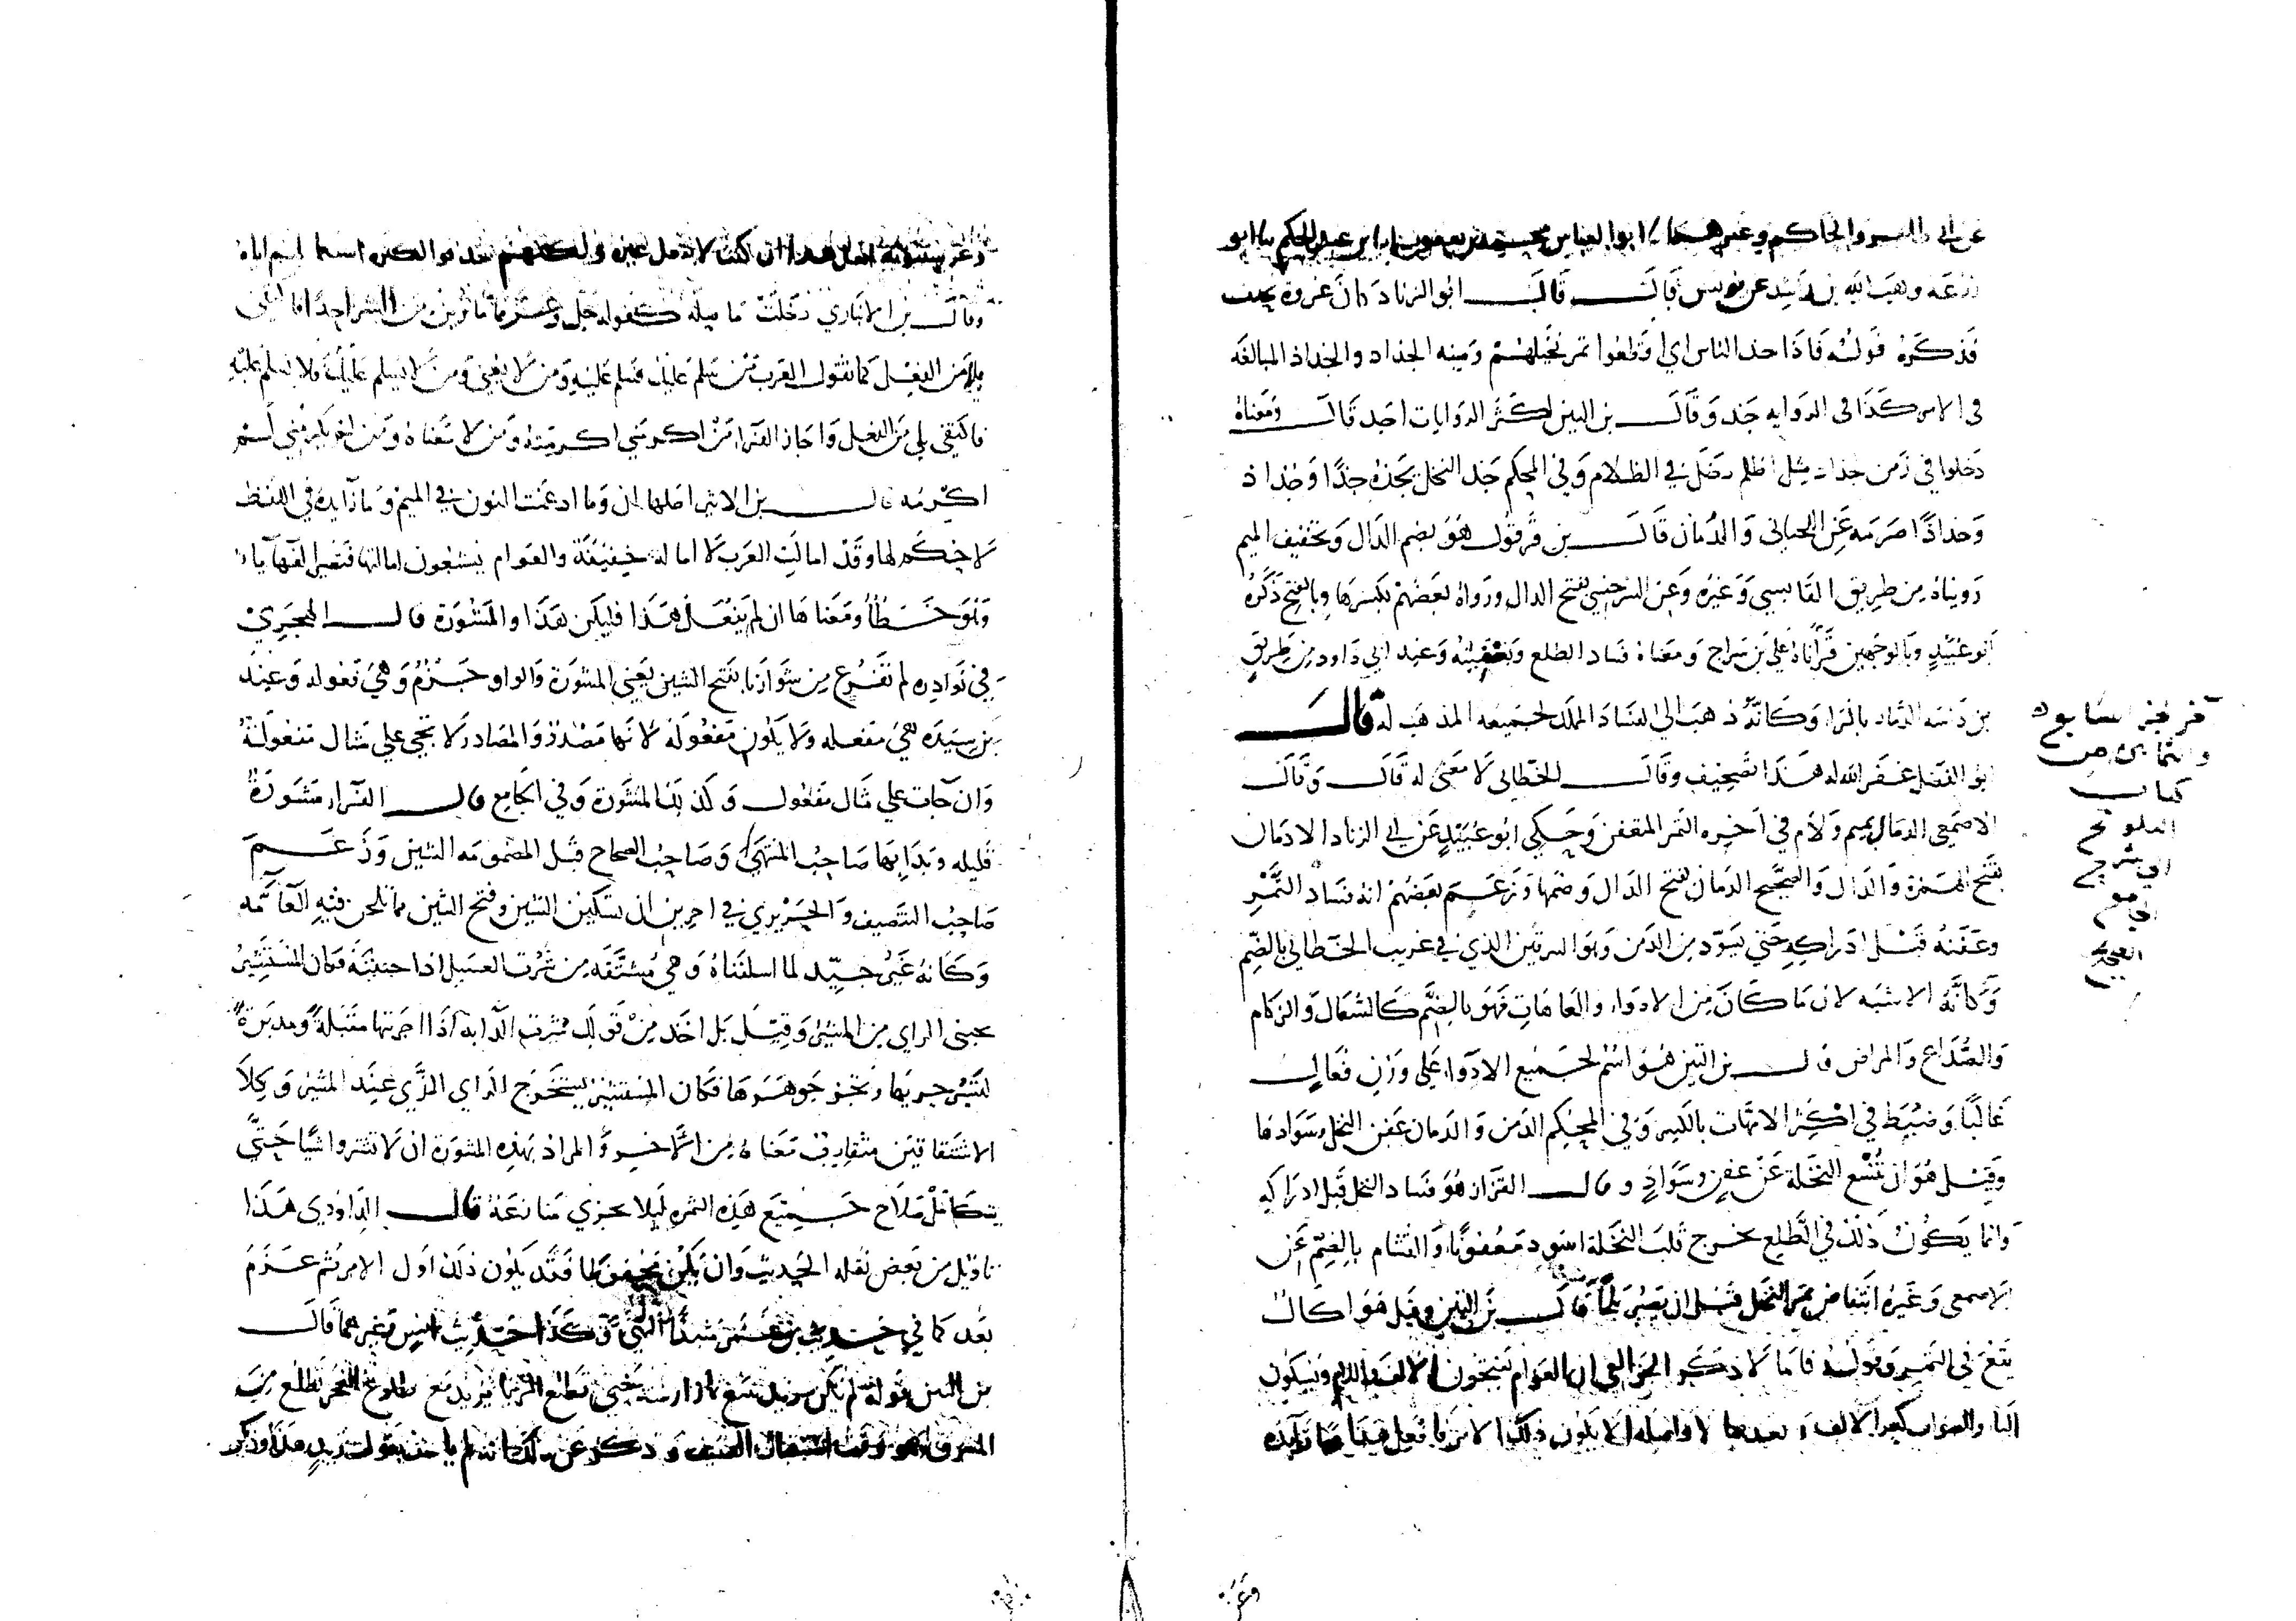 عن ابي الحاكم وغيرهما ابو العباس محمد بن يعقوب ابن عبد الحكم ابو
زرعة وهب الله بن راشد عن يونس قال قال ابو الزناد كان عروة يحدث
فذكره قوله فاذا جذ الناس اي قطعوا ثمر نخيلهم ومنه الجذاذ والجذاذ المبالغة
في الامر كذا في الرواية جذ وقال بن التين اكثر الروايات اجذ قال ومعناه
دخلوا في زمن جذاذ مثل اظلم دخل في الظلام وفي المحكم جذ النخل يجذه جذا وجذاذ
وجذاذا صرمه عن اللحياني والدمان قال بن قرقول هو بضم الدال وتخفيف الميم
رويناه من طريق القابسي وغيره وعن السرخسي بفتح الدال ورواه بعضهم بكسرها وبالفتح ذكره
ابو عبيد وبالوجهين قرأناه على بن سراج ومعناه فساد الطلع وتعفينه وعند ابي داود من طريق
بن داسة الدمار بالراء وكانه ذهب الى الفساد المهلك لجميعه المذهب له قال
ابو الفضل غفر الله له هذا تصحيف وقال الخطابي لا معنى له قال وقال
الاصمعي الدمال بميم ولام في اخره التمر المتعفن وحكى ابو عبيد عن ابي الزناد الادمان
بفتح الهمزة والدال والصحيح الدمان بفتح الدال وضمها وزعم بعضهم انه فساد التمر
وعفنه قبل ادراكه حتى يسود من الدمن وهو السرقين الذي في غريب الخطابي بالضم
وكانه الاشبه لان ما كان من الادواء والعاهات فهو بالضم كالسعال والزكام
والصداع والمراض قال بن التين هو اسم لجميع الادواء على وزن فعال
غالبا وضبط في اكثر الامهات بالكسر وفي المحكم الدمن والدمان عفن النخل وسوادها
وقيل هو ان تنسغ النخلة عن عفن وسواد وقال القزاز هو فساد النخل قبل ادراكه
وانما يكون ذلك في الطلع يخرج قلب النخلة اسود معفونا والقشام بالضم عن
الاصمعي وغيره انتفاض ثمر النخل قبل ان يصير بلحا قال بن التين وقيل هو اكال
يقع في التمر وقوله فاما لا ذكر الجواليقي ان العوام يفتحون الالف واللام ويسكنون
اليا والصواب كسر الالف وبعدها لا واصله الا يكون ذلك الامر فافعل هذا وما زايدة
وعن
اخر الجزء السابع
والثمانين من
كتاب
التلويح
الى شرح
الجامع
الصحيح
وعن سيبويه افعل هذا ان كنت لا تفعل غيره ولكنهم حذفوا لكثرة استعمالهم اياه
وقال بن الانباري دخلت ما صلة كقوله جل وعز فاما ترين من البشر احدا فاكتفى
بلا من الفعل كما تقول العرب من سلم عليك فسلم عليه ومن لا يعنى ومن لا يسلم عليك فلا تسلم عليه
فاكتفى بلى من الفعل واجاز الفراء من اكرمني اكرمته ومن لا معناه ومن لم يكرمني لم
اكرمه قال بن الاثير اصلها ان وما ادغمت النون في الميم وما زايدة في اللفظ
لا حكم لها وقد امالت العرب لا امالة خفيفة والعوام يشبعون امالتها فتصير الفها ياء
وهو خطأ ومعناها ان لم يفعل هذا فليكن هذا والمشورة قال الهجري
في نوادره لم تفرع من شوارنا بفتح الشين يعني المشورة والواو جزم وهي تفوله وعند
بن سيده هي مفعلة ولا يكون مفعولة لانها مصدر والمصادر لا تجي على مثال مفعولة
وان جات على مثال مفعول وكذلك المشورة وفي الجامع قال الفراء مشورة
قليلة وبدا بها صاحب المنتهى وصاحب الصحاح قبل المضمومة الشين وزعم
صاحب التصيف والحريري في اخرين ان تسكين الشين وفتح الشين مما تلحن فيه العامة
وكانه غير جيد لما اسلفناه وهي مشتقة من شرت العسل اذا جنيته فكان المستشير
يجني الراي من المشير وقيل بل اخذ من قولك شرت الدابة اذا اجريتها مقبلة ومدبرة
لتسبر جريها وتختبر جوهرها فكان المستشير يستخرج الراي الذي عند المشير وكلا
الاشتقاقين متقارب معناه من الاخر والمراد بهذه المشورة ان لا تشتروا شيا حتى
يتكامل صلاح جميع هذه الثمرة ليلا يجري منازعة قال الداودي هذا
تاويل من بعض نقلة الحديث وان يكن محفوظا فقد يكون ذلك اول الامر ثم عزم
بعد كما في حديث بن عمر مبدا النهي وكذا حديث انس وغيرهما قال
بن التين قوله لم يكن زيد يبيع ثمار ارضه حتى تطلع الثريا يريد مع طلوع الفجر تطلع من
المشرق وهو وقت استقبال الصيف وذكر عن مالك انه لم ياخذ بقول زيد هذا وذكر